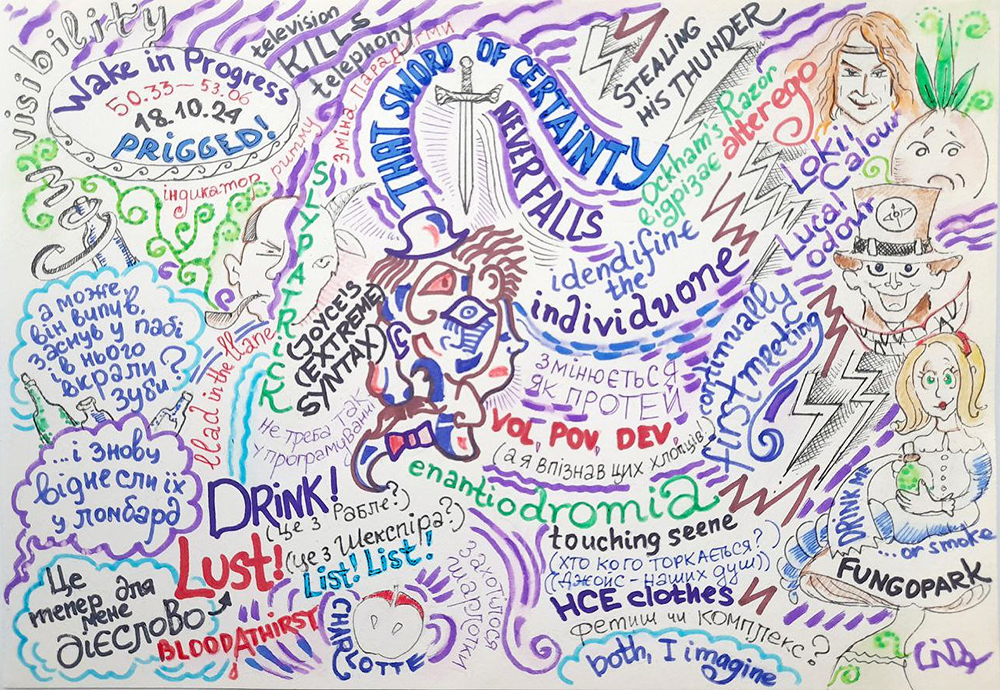 visibility
Wake in Progress
50.33 – 53.06
18.10.24
PRIGGED!
television
KILLS
telephony
зміна парадигми
індикатор ритму
THAT SWORD OF CERTAINTY
NEVER FALLS
STEALING
HIS THUNDER
Ockham's Razor
відрізає alterego
Loki!
Calour
Lucal
odour
SLYPATRICK
llad in the llane
(JOYCE'S
(EXTREME)
SYNTAX)
idendifine
the
individuone
continually
first meeting
а може,
він випив,
заснув у пабі
в нього
вкрали
зуби?
...і знову
віднесли їх
у ломбард
Це
тепер для
мене
дієслово
не треба так
у програмуванні
змінюється
як Протей
VOL, POV, DEV,
(а я впізнав цих хлопців!)
enantiodromia
DRINK!
(це з Рабле?)
Lust!
(це з Шекспіра?)
List! List!
BLOODATHIRST
CHARLOTTE
захотілося
шарлотки
touching seene
(хто кого торкається?)
((Джойс – наших душ))
HCE clothes
фетиш чи комплекс?
both, I imagine
DRINK ME
...or smoke
FUNGOPARK